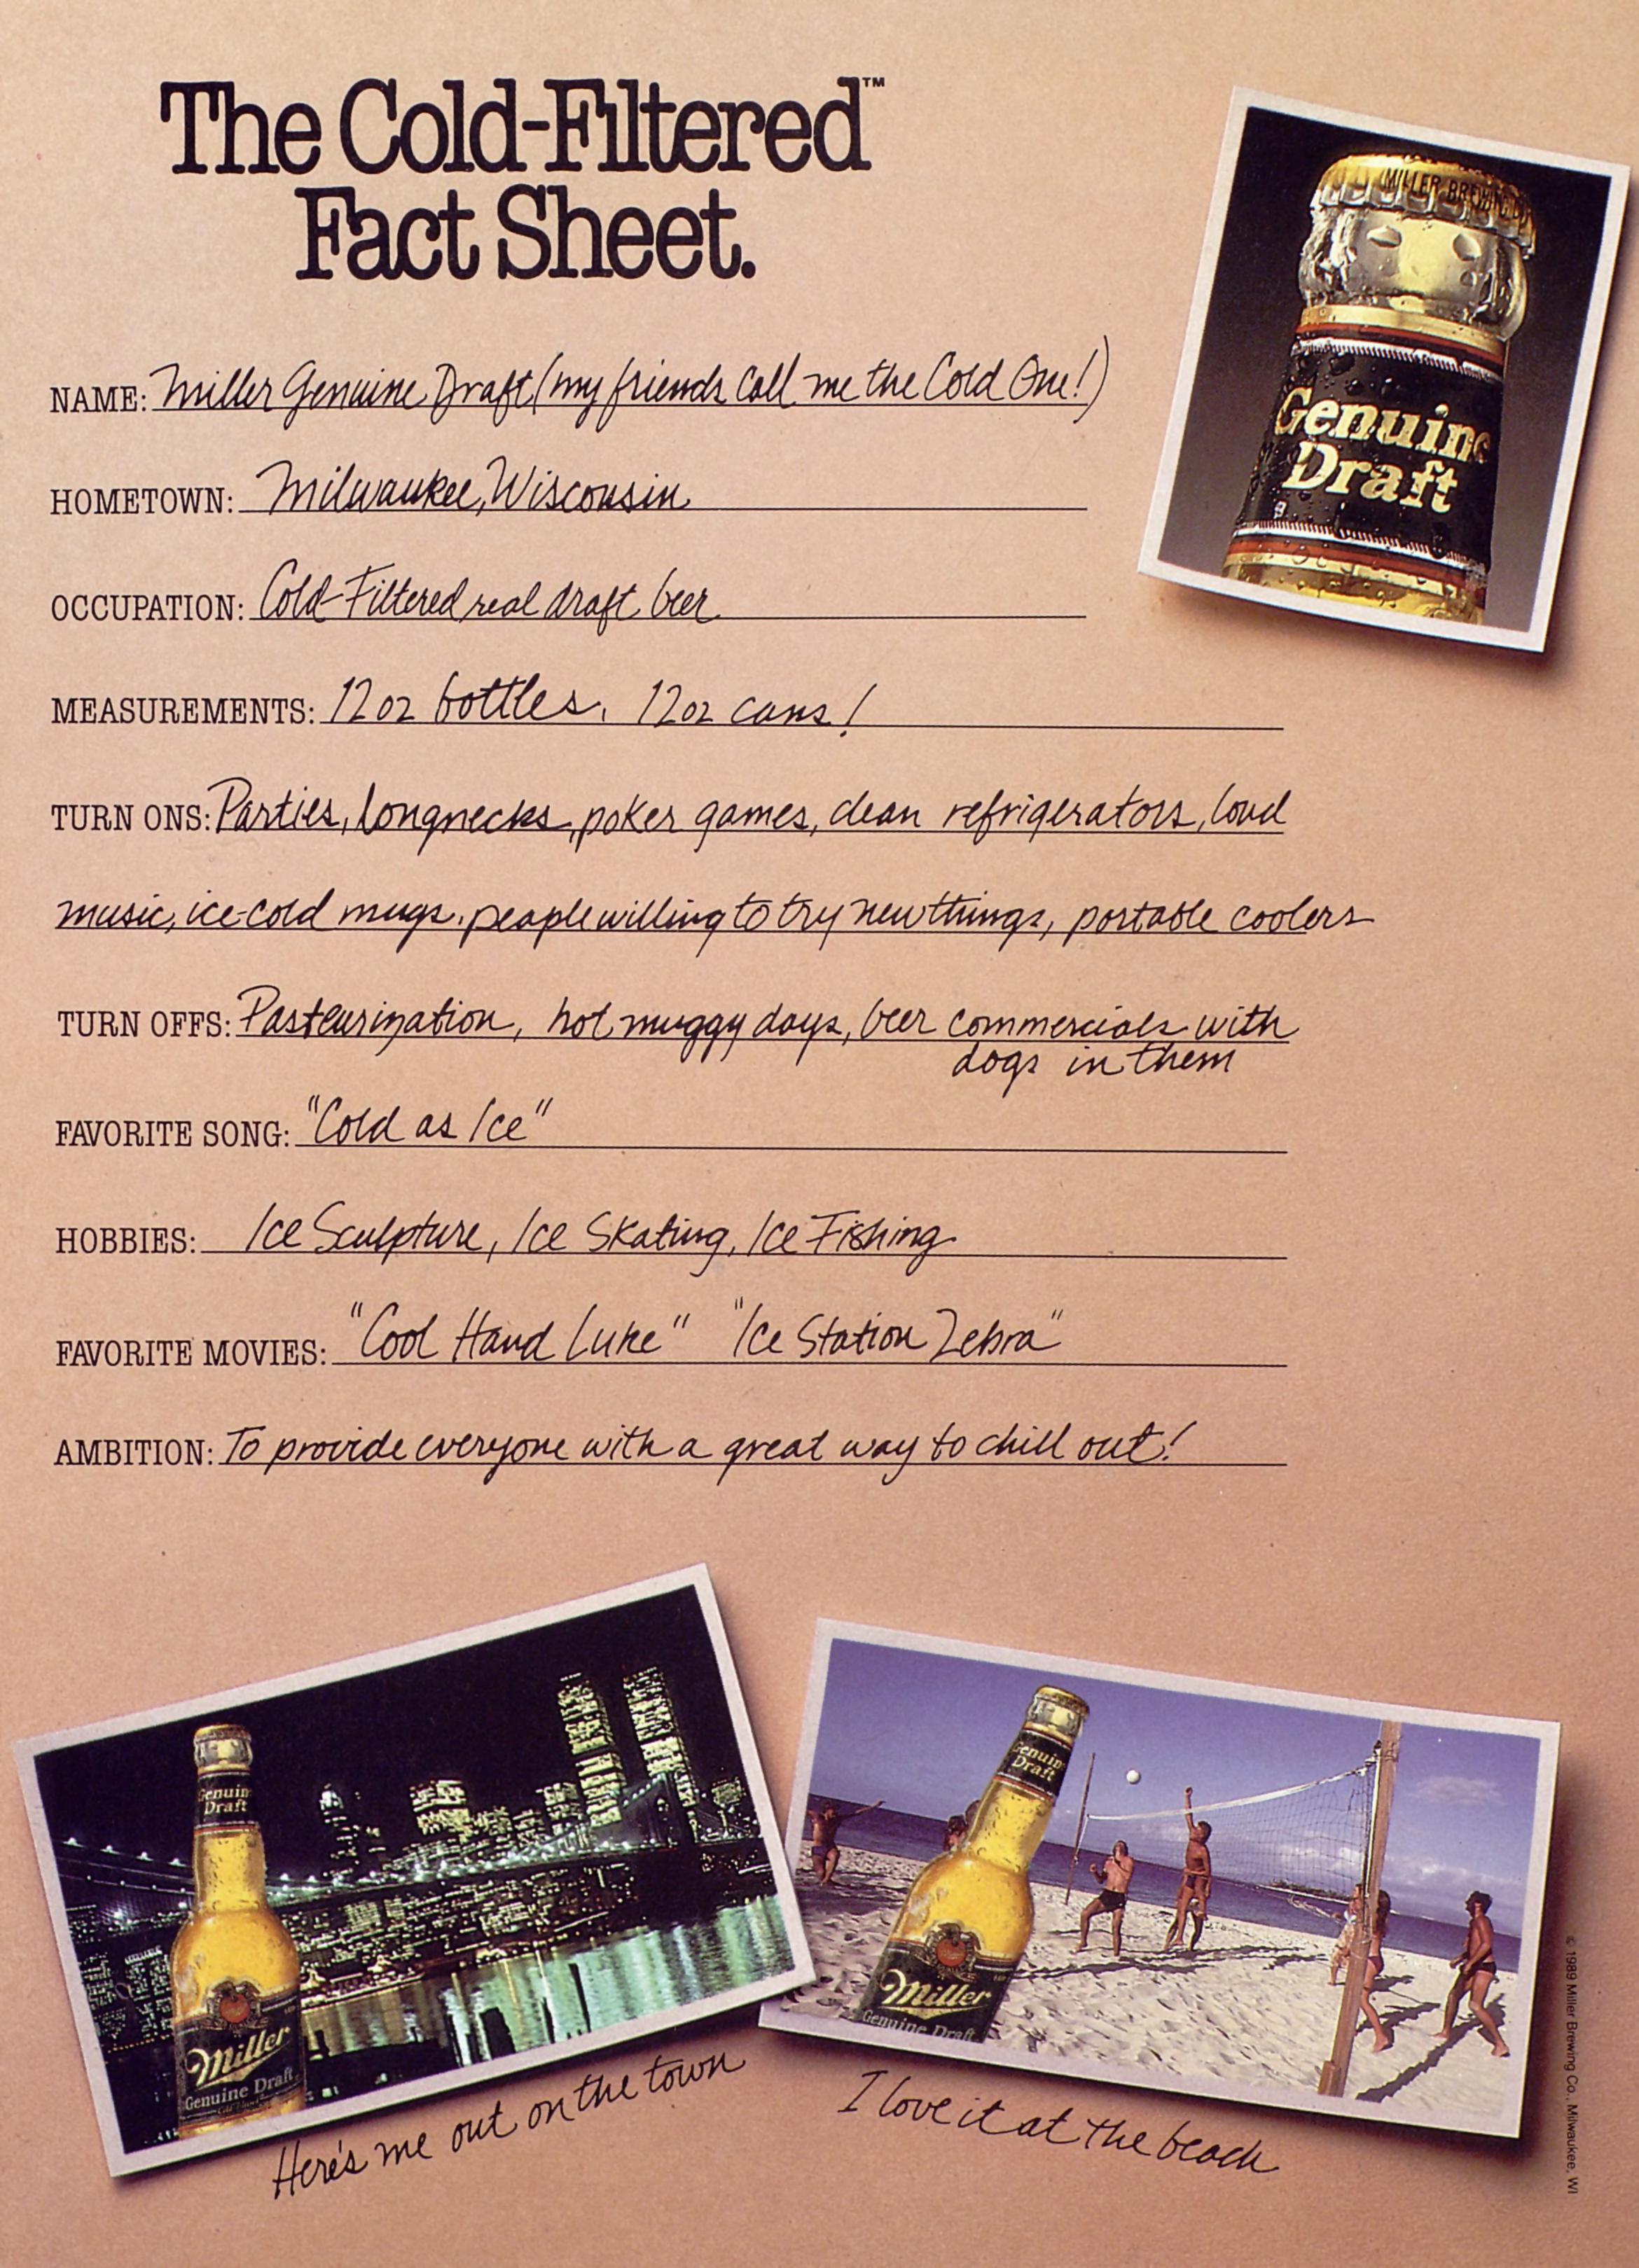 The Cold-Filtered™
Fact Sheet.
MILLER BREWING CO
Genuine
Draft
NAME: Miller Genuine Draft (my friends call me the Cold One!)
HOMETOWN: Milwaukee, Wisconsin
OCCUPATION: Cold-Filtered real draft beer
MEASUREMENTS: 12 oz bottles, 12 oz cans!
TURN ONS: Parties, longnecks, poker games, clean refrigerators, loud
music, ice-cold mugs, people willing to try new things, portable coolers
TURN OFFS: Pasteurization, hot muggy days, beer commercials with
dogs in them
FAVORITE SONG: "Cold as Ice"
HOBBIES: Ice Sculpture, Ice Skating, Ice Fishing
FAVORITE MOVIES: "Cool Hand Luke" "Ice Station Zebra"
AMBITION: To provide everyone with a great way to chill out!
Genuine
Draft
Miller
Genuine Draft
Here's me out on the town
Genuine
Draft
Miller
Genuine Draft
I love it at the beach
© 1989 Miller Brewing Co., Milwaukee, WI